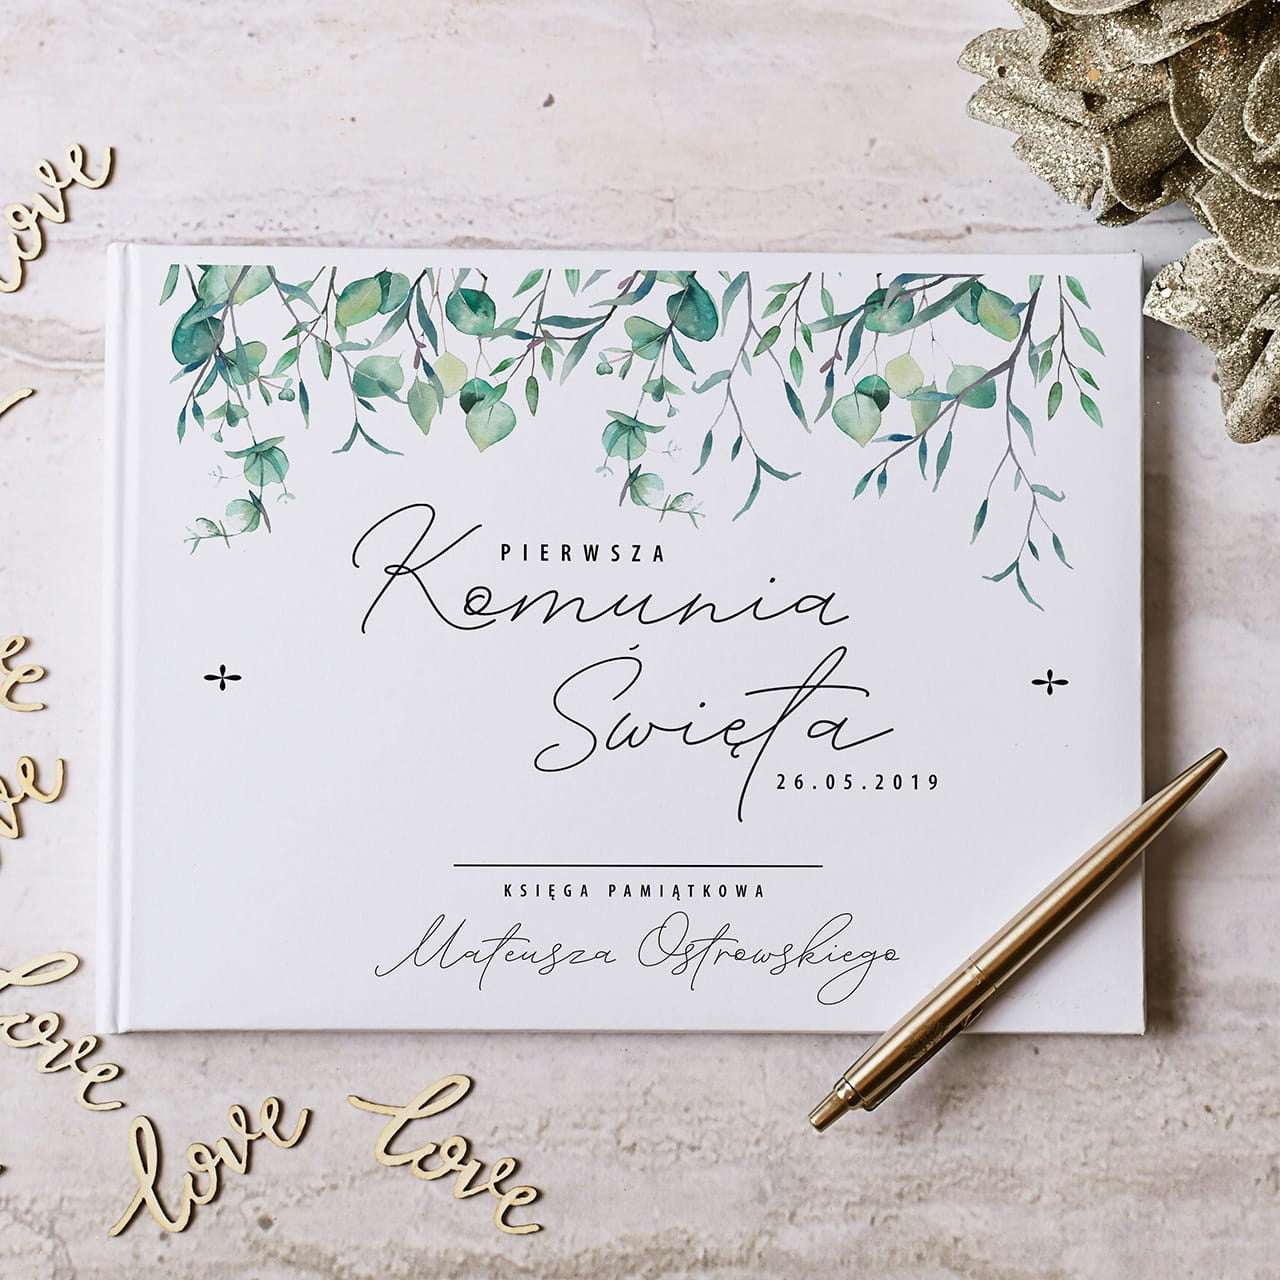 PIERWSZA
Komunia
Święta
26.05.2019
KSIĘGA PAMIĄTKOWA
Mateusza Ostrowskiego
love
love
love
love